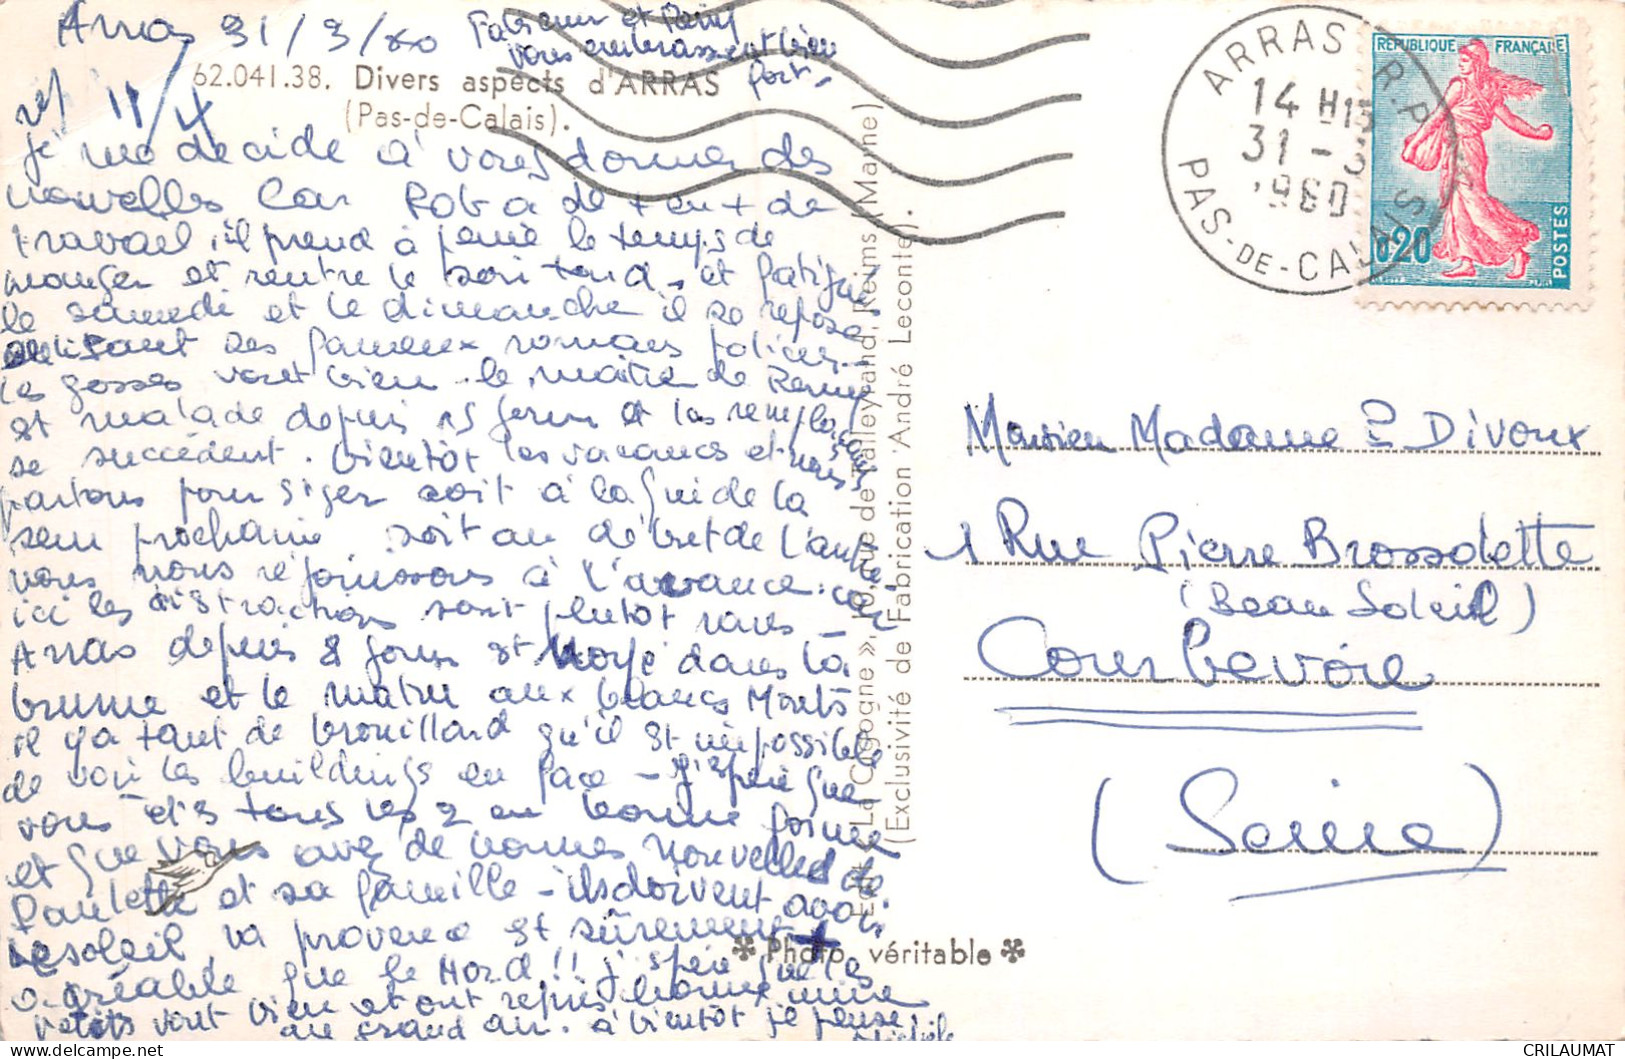 Arras 31/3/60
Fabienne et Rémy
vous embrassent bien
fort.
62.041.38. Divers aspects d'ARRAS
(Pas-de-Calais).
rep 11/4
je me decide à vous donner des
nouvelles Car Rob a de + en + de
travail, il prend à peine le temps de
manger et rentre le soir tard, et fatigué
le samedi et le dimanche il se repose
en lisant ses fameux romans policiers
les gosses vont bien - le maître de Remy
est malade depuis 15 jours et les remplaçants
se succèdent. bientôt les vacances et nous
partons pour siger soit à la fin de la
sem prochaine soit au début de l'autre
nous nous réjouissons à l'avance car
ici les distractions sont plutôt rares -
Arras depuis 8 jours est noyé dans la
brume et le matin aux blancs Monts
il y a tant de brouillard qu'il est impossible
de voir les buildings en face - J'espère que
vous êtes tous les 2 en bonne forme
et que vous avez de bonnes nouvelles de
Paulette et sa famille - ils doivent avoir
le soleil, la provence est sûrement +
agréable que le Nord!! j'espère que les
petits vont bien et ont repris bonne mine
au grand air. à bientôt je pense
RÉPUBLIQUE FRANÇAISE
0,20
POSTES
ARRAS R.P.
14 H15
31 - 3
1960
PAS-DE-CALAIS
Edit. « La Cigogne », 10, rue de Talleyrand, Reims (Marne)
(Exclusivité de Fabrication André Leconte).
Monsieur Madame P Divoux
1 Rue Pierre Brossolette
(Beau Soleil)
Courbevoie
(Seine)
✻ Photo véritable ✻
CRILAUMAT